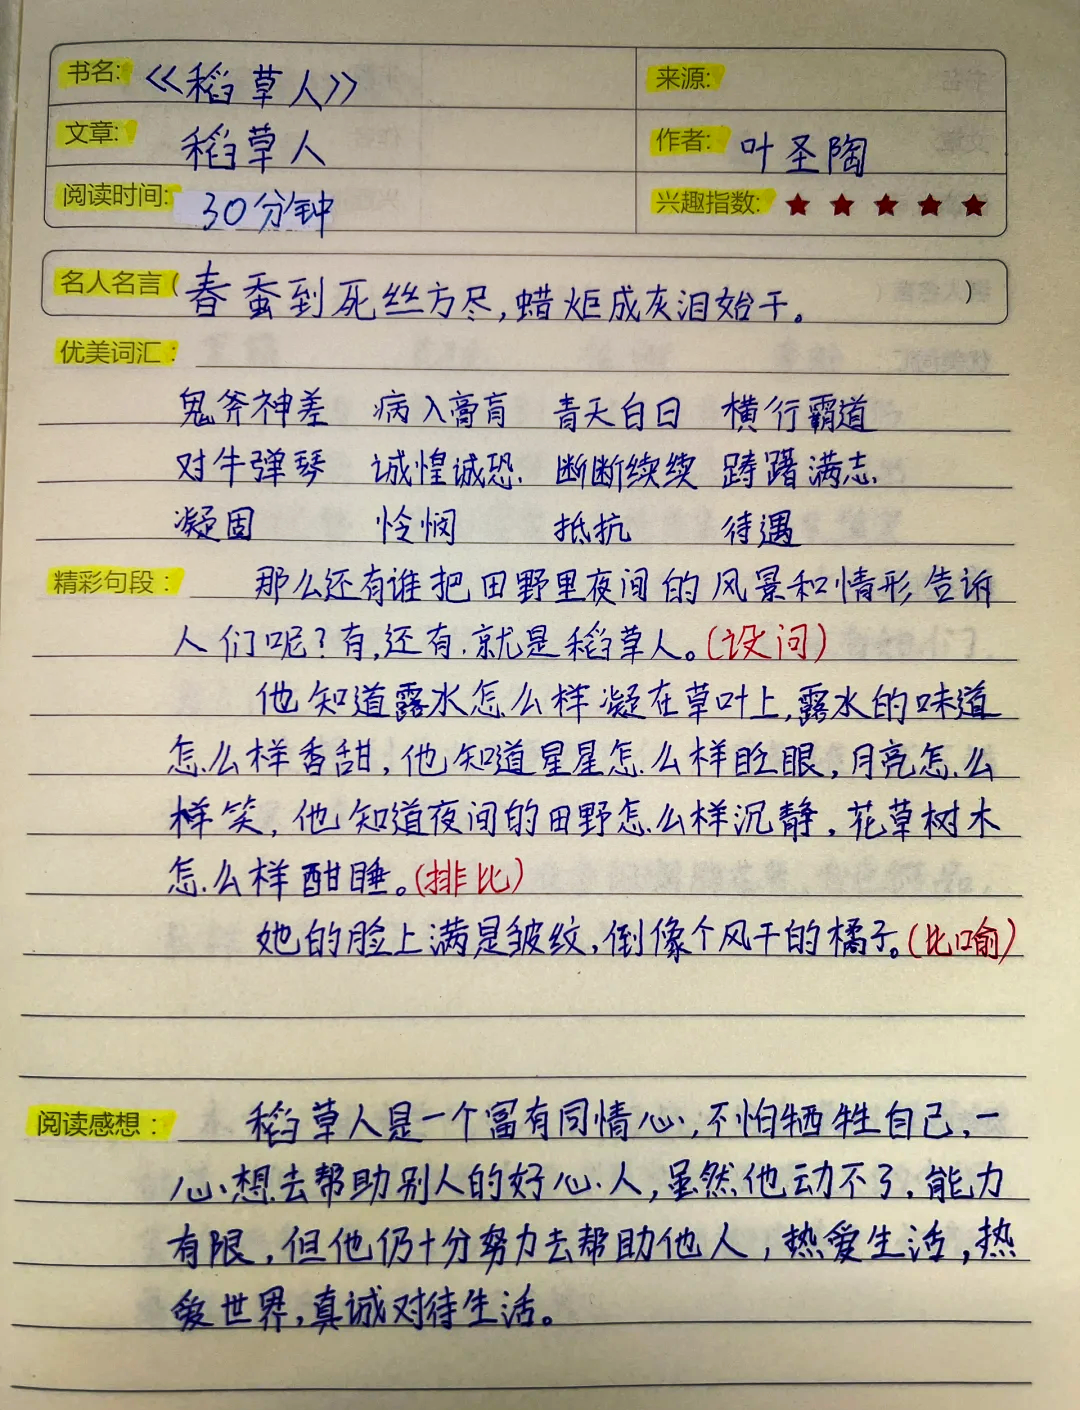 书名: 《稻草人》 来源:
文章: 稻草人 作者: 叶圣陶
阅读时间: 30分钟 兴趣指数: ★★★★★
名人名言(春蚕到死丝方尽,蜡炬成灰泪始干。)
优美词汇:
鬼斧神差 病入膏肓 青天白日 横行霸道
对牛弹琴 诚惶诚恐. 断断续续 踌躇满志.
凝固 怜悯 抵抗 待遇
精彩句段: 那么还有谁把田野里夜间的风景和情形告诉
人们呢?有,还有.就是稻草人。(设问)
他知道露水怎么样凝在草叶上,露水的味道
怎么样香甜,他知道星星怎么样眨眼,月亮怎么
样笑,他知道夜间的田野怎么样沉静,花草树木
怎么样酣睡。(排比)
她的脸上满是皱纹,倒像个风干的橘子。(比喻)
阅读感想: 稻草人是一个富有同情心,不怕牺牲自己,一
心想去帮助别人的好心人,虽然他动不了,能力
有限,但他仍十分努力去帮助他人,热爱生活,热
爱世界,真诚对待生活。